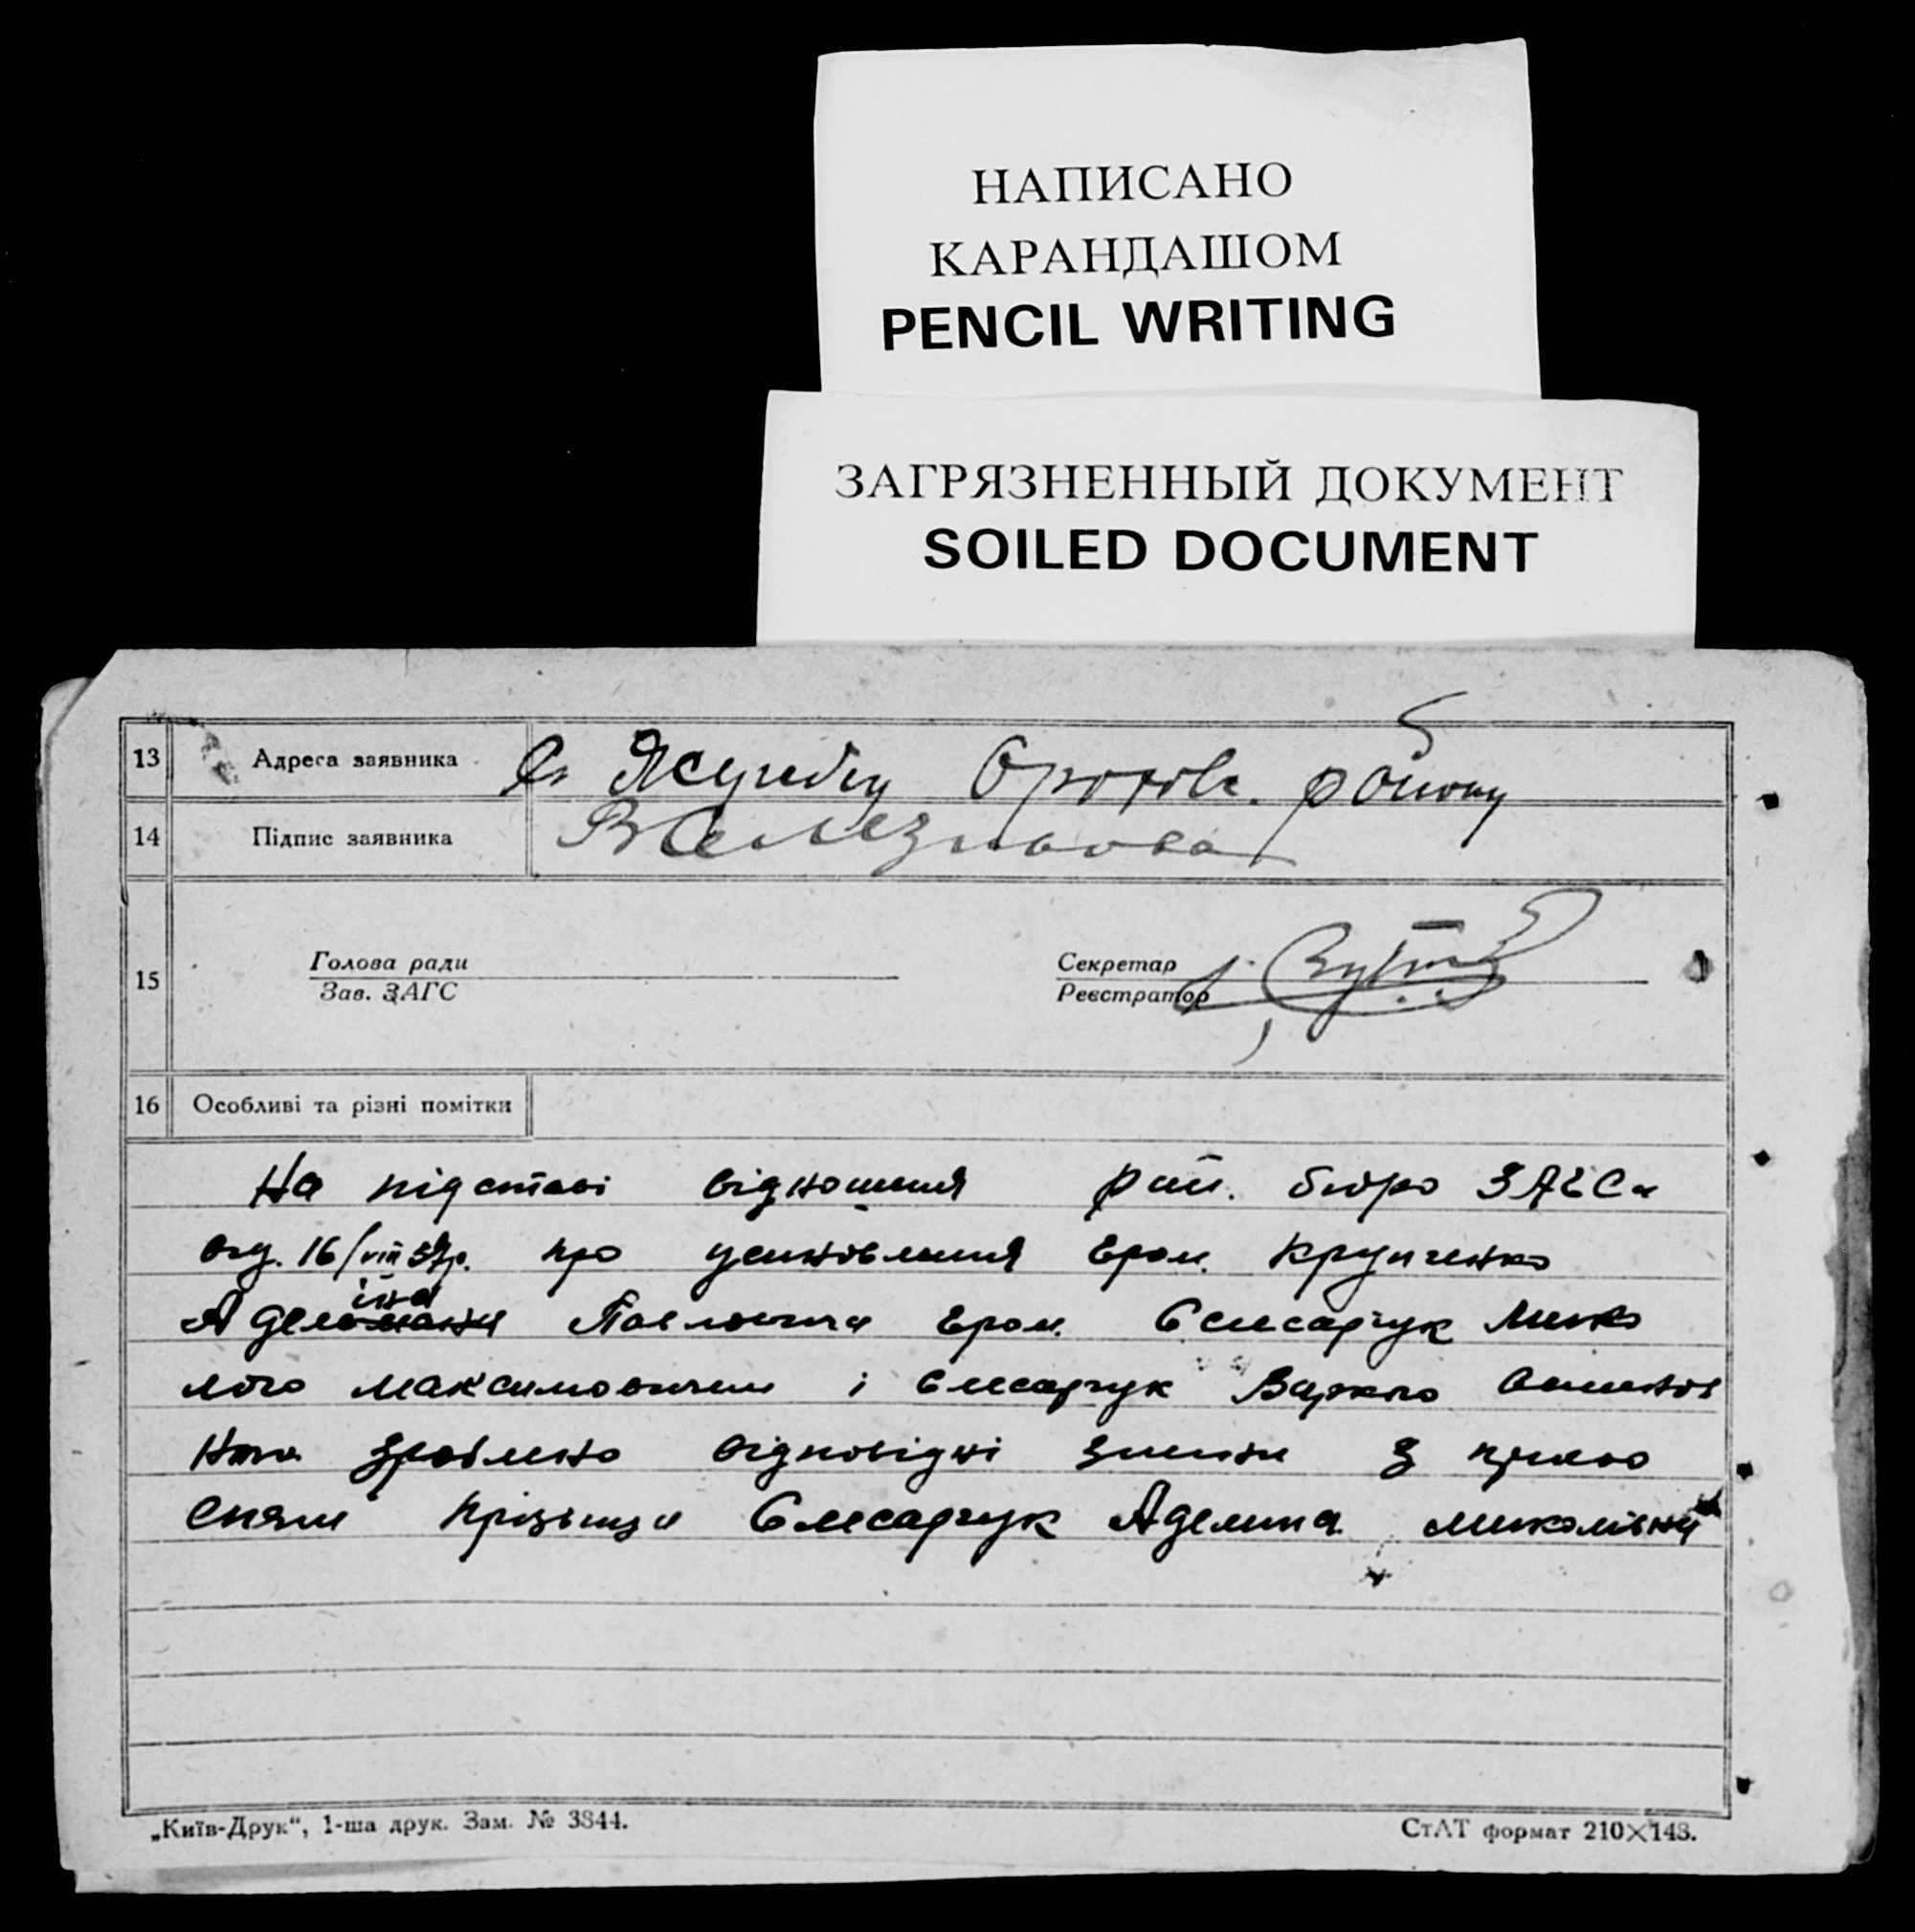 НАПИСАНО
КАРАНДАШОМ
PENCIL WRITING
ЗАГРЯЗНЕННЫЙ ДОКУМЕНТ
SOILED DOCUMENT
13 Адреса заявника с. району
14 Підпис заявника
15 Голова ради Секретар
Зав. ЗАГС Реєстратор
16 Особливі та різні помітки
На підставі відношення рай. бюро ЗАГСа
від. 16/VIII 37р. про усиновлення гром. Крупченко
Павловича гром. Єлисарчук Мико
лого Максимовичем і Єлисарчук
зроблено відповідні зміни з
прізвища Єлисарчук Аделина Миколівна
„Київ-Друк“, 1-ша друк. Зам. № 3844.
СтАТ формат 210×148.